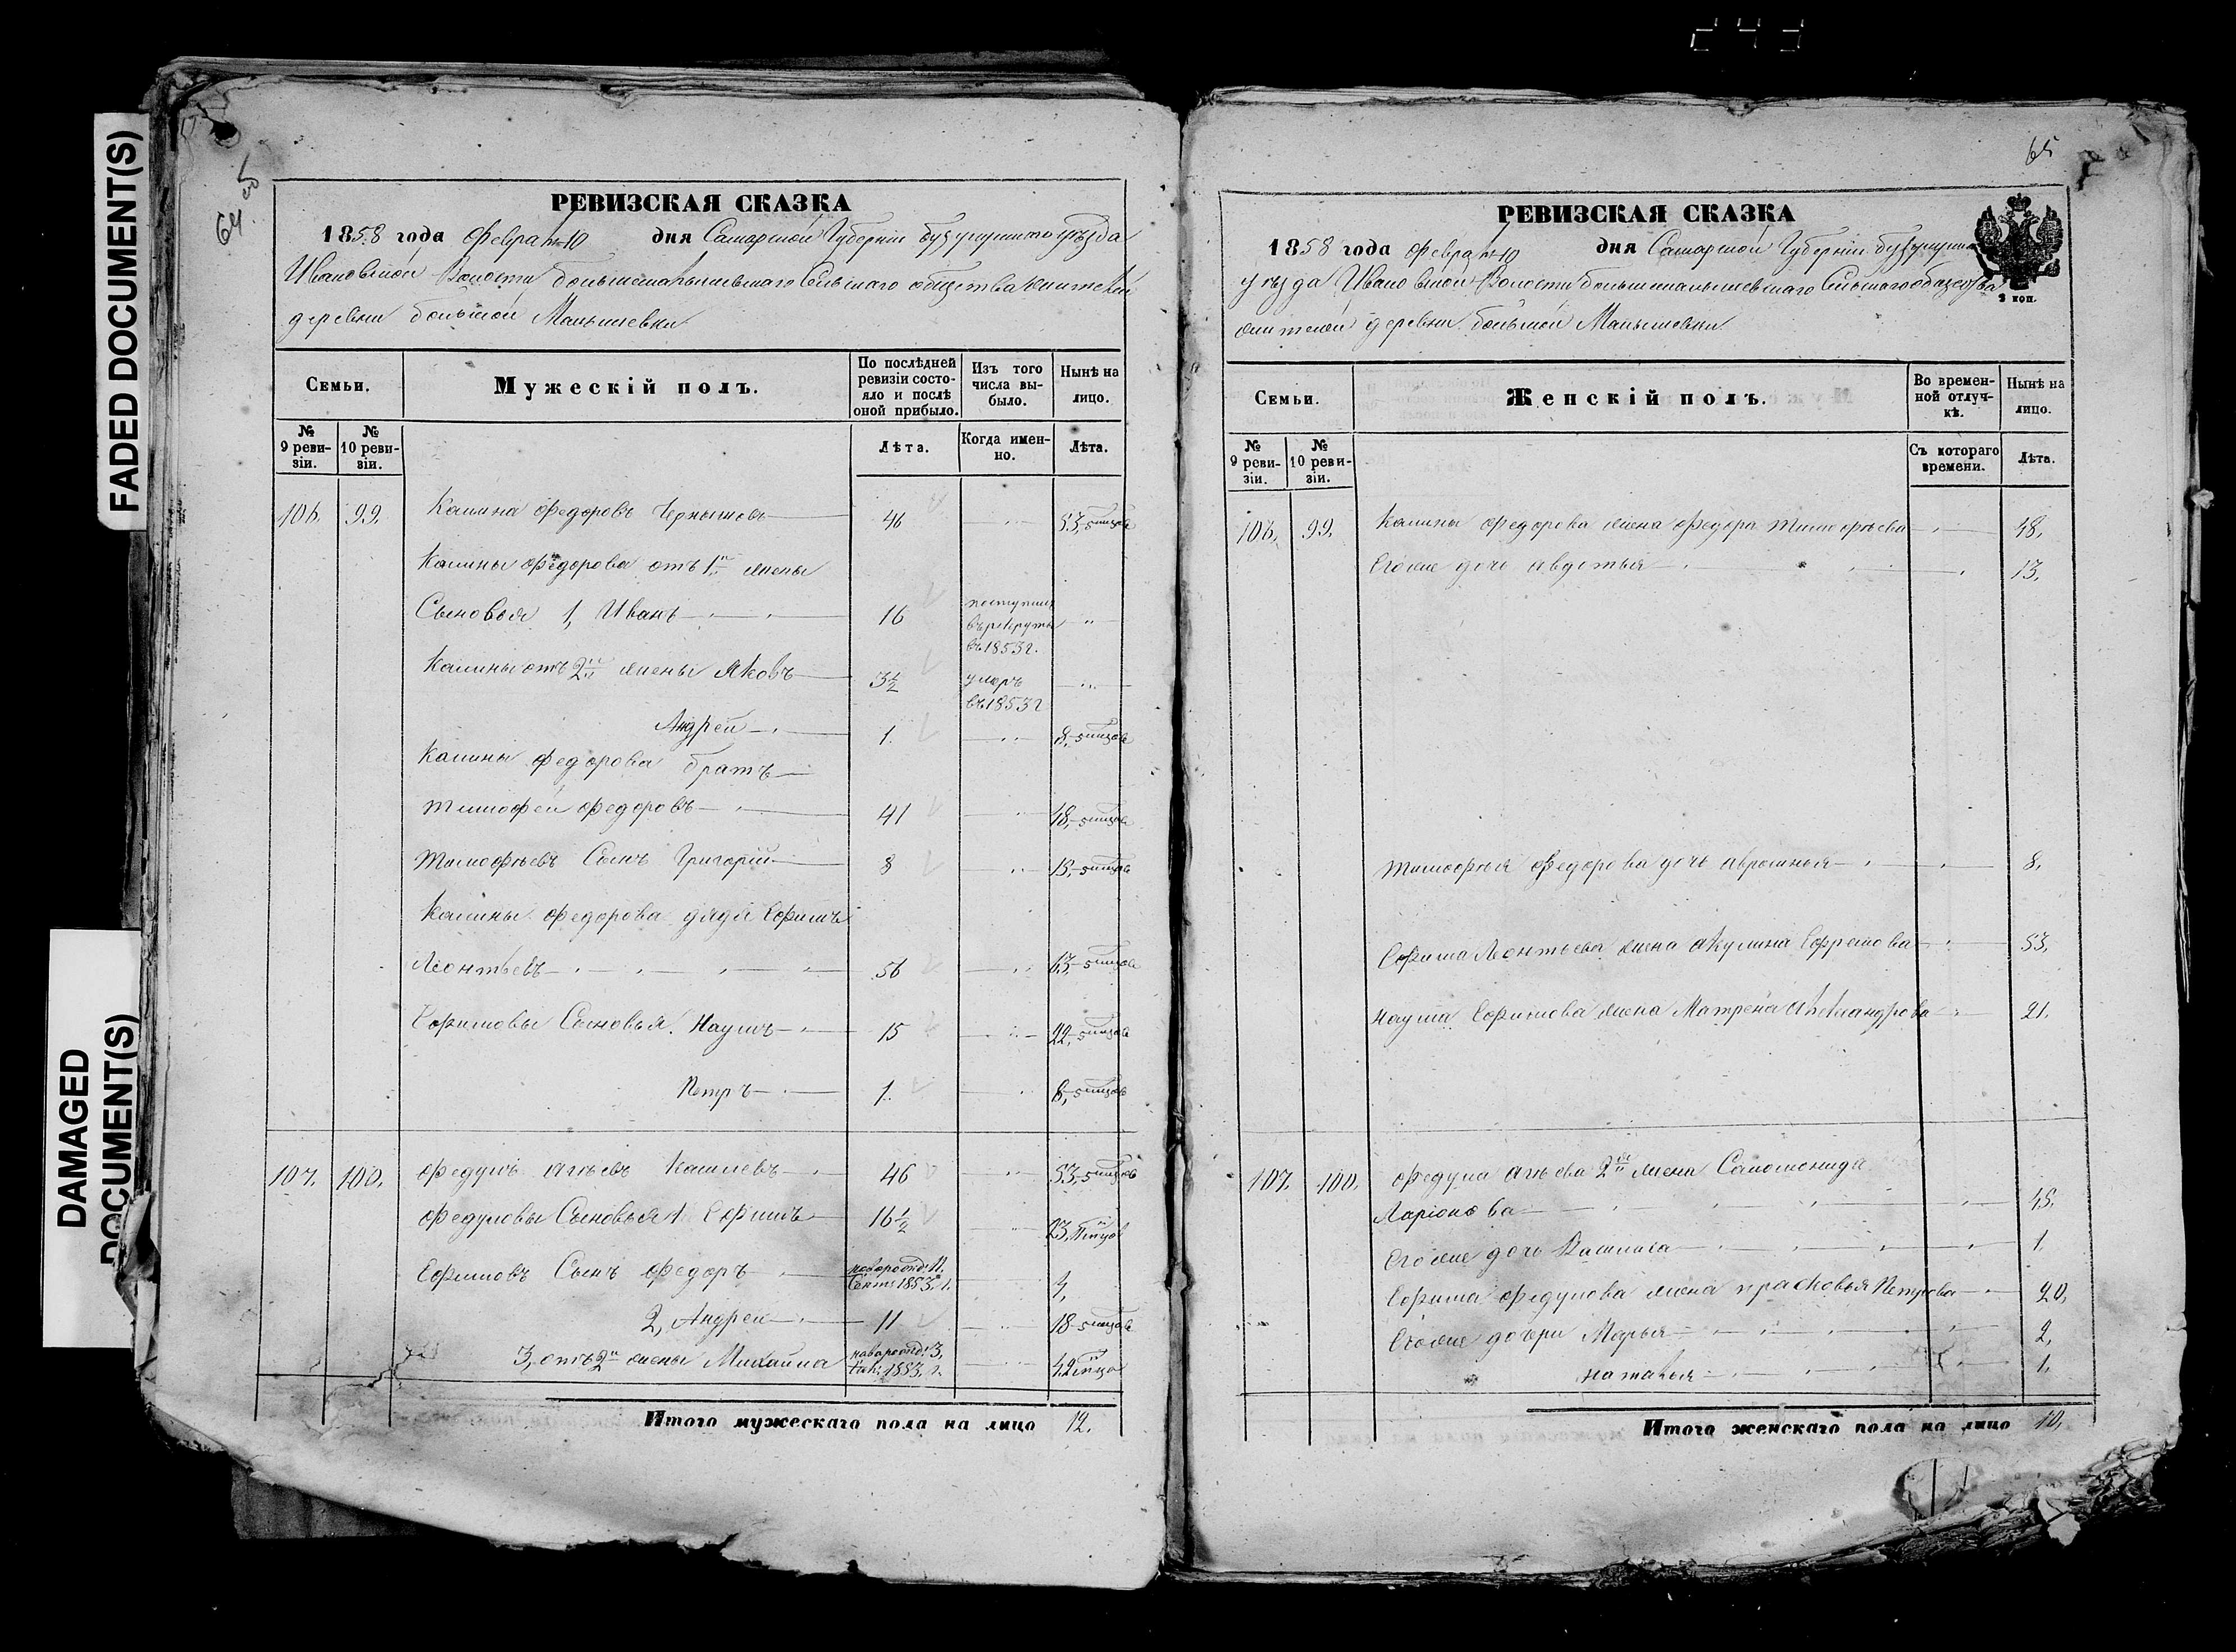 243
FADED DOCUMENT(S)
DAMAGED
DOCUMENT(S)
64
РЕВИЗСКАЯ СКАЗКА
1858 года Февраля 10 дня Самарской Губернии Бузулукского уѣзда
Ивановской Волости большемалышевскаго Сельскаго общества
деревни большой Малышевки
Семьи.
Мужескій полъ.
По послѣдней ревизіи состояло и послѣ оной прибыло.
Изъ того числа выбыло.
Нынѣ на лицо.
№ 9 ревизіи.
№ 10 ревизіи.
Лѣта.
Когда именно.
Лѣта.
106. 99. Калина Федоровъ Чернышовъ 46 53,
Калины Федорова отъ 1й жены
Сыновья 1, Иванъ 16 поступилъ въ рекруты въ 1853 г.
Калины отъ 2й жены Яковъ 3½ умеръ въ 1853 г
Андрей 1. 8,
Калины Федорова братъ
Тимофей Федоровъ 41 48,
Тимофѣевъ Сынъ Григорій 8 15,
Калины Федорова дядя Ефимъ
Леонтьевъ 56 63,
Ефимовы Сыновья. Наумъ 15 22,
Петръ 1. 8,
107. 100. Федулъ 46 53,
Федуловы Сыновья 1. Ефимъ 16½ 23,
Ефимовъ Сынъ Федоръ новорожд: 11. Сент: 1853. г. 4,
2, Андрей 11 18
3, отъ 2й жены Михайла новорожд: 3, 1853. г. 4,
Итого мужескаго пола на лицо 12.
65
РЕВИЗСКАЯ СКАЗКА
1858 года Февраля 10 дня Самарской Губернии
уѣзда Ивановской Волости большемалышевскаго Сельскаго общества
деревни большой Малышевки
3 коп.
Семьи.
Женскій полъ.
Во временной отлучкѣ.
Нынѣ на лицо.
№ 9 ревизіи.
№ 10 ревизіи.
Съ котораго времени.
Лѣта.
106. 99. Калины Федорова жена Федора Тимофѣева 48,
Его же дочь Авдотья 13,
Тимофея Федорова дочь 8,
Ефима Леонтьева жена Акулина Ефремова 53,
Наума Ефимова жена Матрена Александрова 21.
107. 100. Федула 2я жена Саломонида
Ларіонова 45,
Его же дочь 1.
Ефима Федулова жена Прасковья Петрова 20,
Его же дочери Марья 2,
Наталья 1.
Итого женскаго пола на лицо 10,